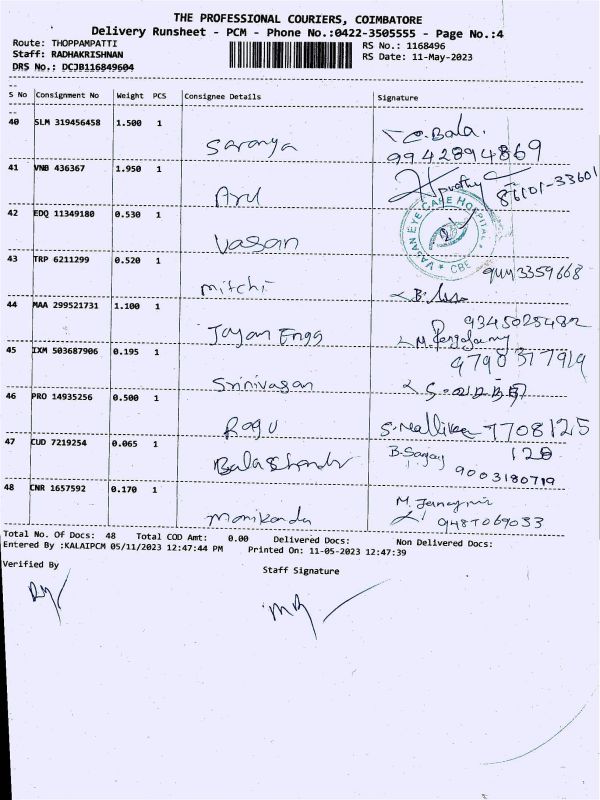 THE PROFESSIONAL COURIERS, COIMBATORE
Delivery Runsheet - PCM - Phone No.:0422-3505555 - Page No.:4
Route: THOPPAMPATTI
RS No.: 1168496
Staff: RADHAKRISHNAN
RS Date: 11-May-2023
DRS No.: DCJB116849604
S No Consignment No Weight PCS Consignee Details Signature
40 SLM 319456458 1.500 1
Saranya
C.Bala.
9942894869
41 VNB 436367 1.950 1
Arul
86101-33601
42 EDQ 11349180 0.530 1
Vasan
VASAN EYE CARE HOSPITAL
CBE
43 TRP 6211299 0.520 1
Mitchi
9443359668
44 MAA 299521731 1.100 1
Jayam Engg
9345025482
45 IXM 503687906 0.195 1
Srinivasan
9798377919
46 PRO 14935256 0.500 1
Ragu
S.Mallika 7708125
128
47 CUD 7219254 0.065 1
Balachander
9003180719
48 CNR 1657592 0.170 1
Manikanda
9487069033
Total No. Of Docs: 48 Total COD Amt: 0.00 Delivered Docs: Non Delivered Docs:
Entered By :KALAIPCM 05/11/2023 12:47:44 PM Printed On: 11-05-2023 12:47:39
Verified By
Staff Signature